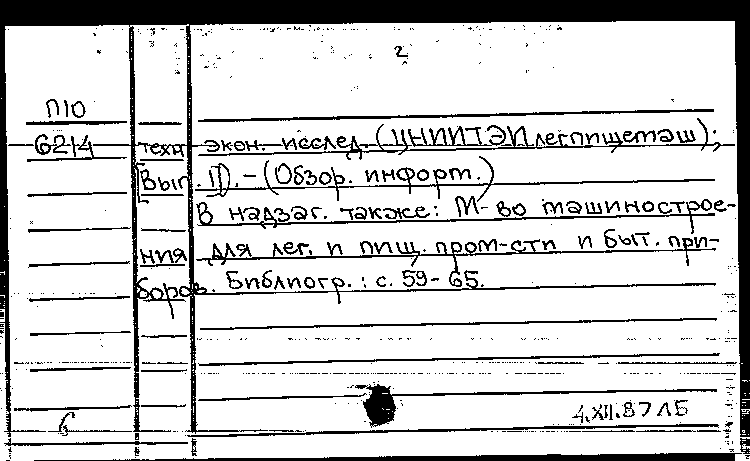 2
П10
6214 техн.-экон. исслед. (ЦНИИТЭИлегпищемаш);
[Вып. II). - (Обзор. информ.)
В надзаг. также: М-во машинострое-
ния для лег. и пищ. пром-сти и быт. при-
боров. Библиогр.: с. 59-65.
б
4.XII.87 ЛБ